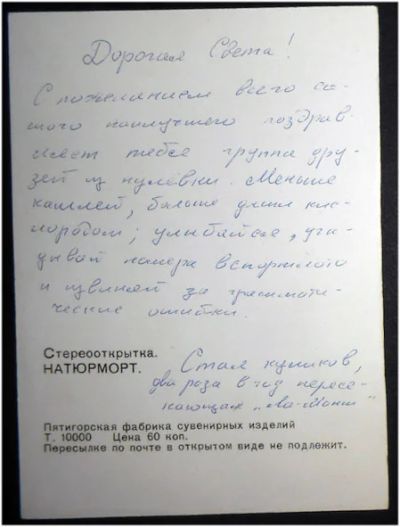 Дорогая Света!
С пожеланием всего са-
мого наилучшего поздрав-
ляет тебя группа дру-
зей из нулёвки. Меньше
кашляй, больше дыши кис-
лородом; улыбайся, уга-
дывай номера в спортлото
и извиняй за граммати-
ческие ошибки.
Стереооткрытка.
НАТЮРМОРТ.
Стая
два раза в год пересе-
кающая „Ла-Манш"
Пятигорская фабрика сувенирных изделий
Т. 10000 Цена 60 коп.
Пересылке по почте в открытом виде не подлежит.